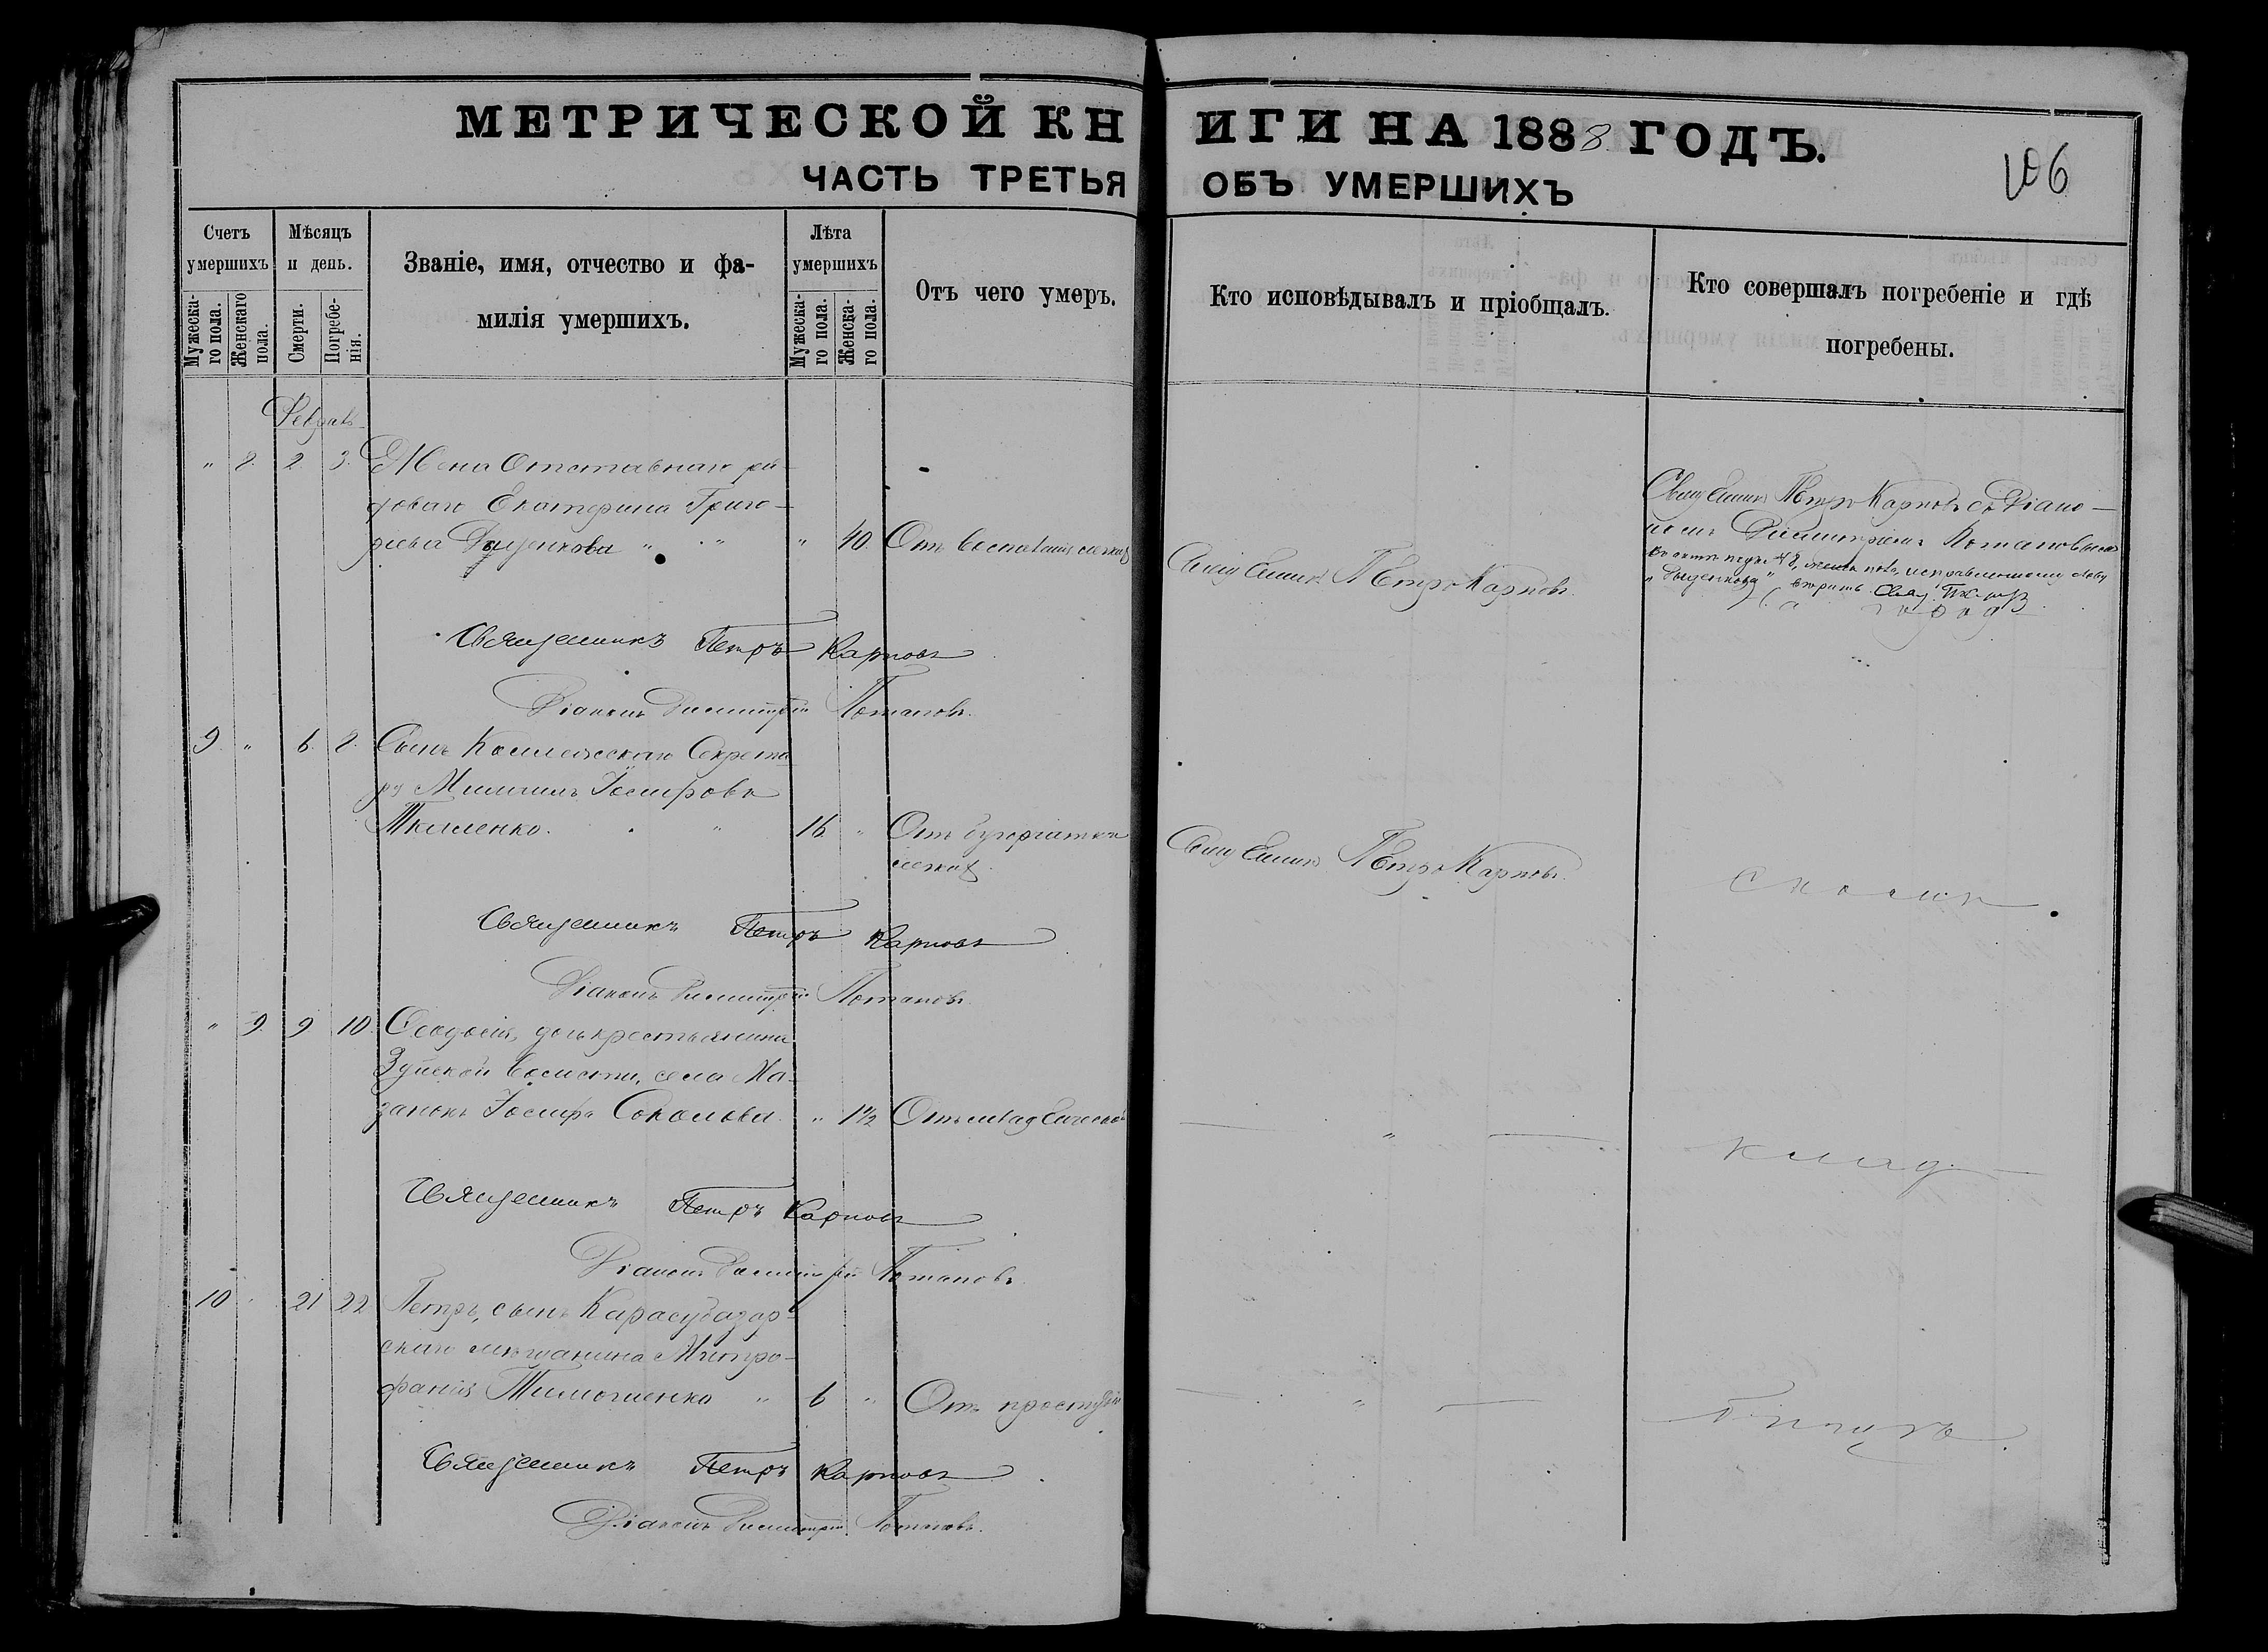 МЕТРИЧЕСКОЙ КНИГИ НА 1888 ГОДЪ.
106
ЧАСТЬ ТРЕТЬЯ ОБЪ УМЕРШИХЪ
Счетъ умершихъ
Мужеска-го пола.
Женскаго пола.
Мѣсяцъ и день.
Смерти.
Погребе-нія.
Званіе, имя, отчество и фа-
милія умершихъ.
Лѣта умершихъ
Мужеска-го пола.
Женска-го пола.
Отъ чего умеръ.
Кто исповѣдывалъ и пріобщалъ.
Кто совершалъ погребеніе и гдѣ
погребены.
Февраль
" 8. 2. 3. Жена Отставнаго ря-
доваго Екатерина Григо-
рьева Дыценкова " " " 40. Отъ воспаленія легких
Священникъ Петръ Карповъ
Священникъ Петръ Карповъ съ Діако-
номъ Димитріемъ Потаповымъ
Въ актѣ подъ № 8, жен. пола, исправленному слову
"Дыценкова" вѣрить. Свящ. П. К.
Священникъ Петръ Карповъ
Діаконъ Димитрій Потаповъ
9. " 6. 8. Сынъ Коллежскаго Секрета
ря Михаилъ Іосифовъ
Ткаченко. " 16 " Отъ бугорчатки
легких
Священникъ Петръ Карповъ
Священникъ Петръ Карповъ
Діаконъ Димитрій Потаповъ
" 9. 9. 10. Ѳеодосія, дочь крестьянина
Зуйской волости, села Ма-
занокъ Іосифа Соколова. " 1½ Отъ младенческой
" клад.
Священникъ Петръ Карповъ
Діаконъ Димитрій Потаповъ
10 " 21 22 Петръ, сынъ Карасубазар-
скаго мѣщанина Митро-
фанія Тимошенко " 6 " Отъ простуды
"
Священникъ Петръ Карповъ
Діаконъ Димитрій Потаповъ